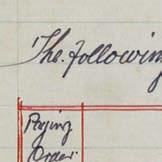 The following
Paying
Order